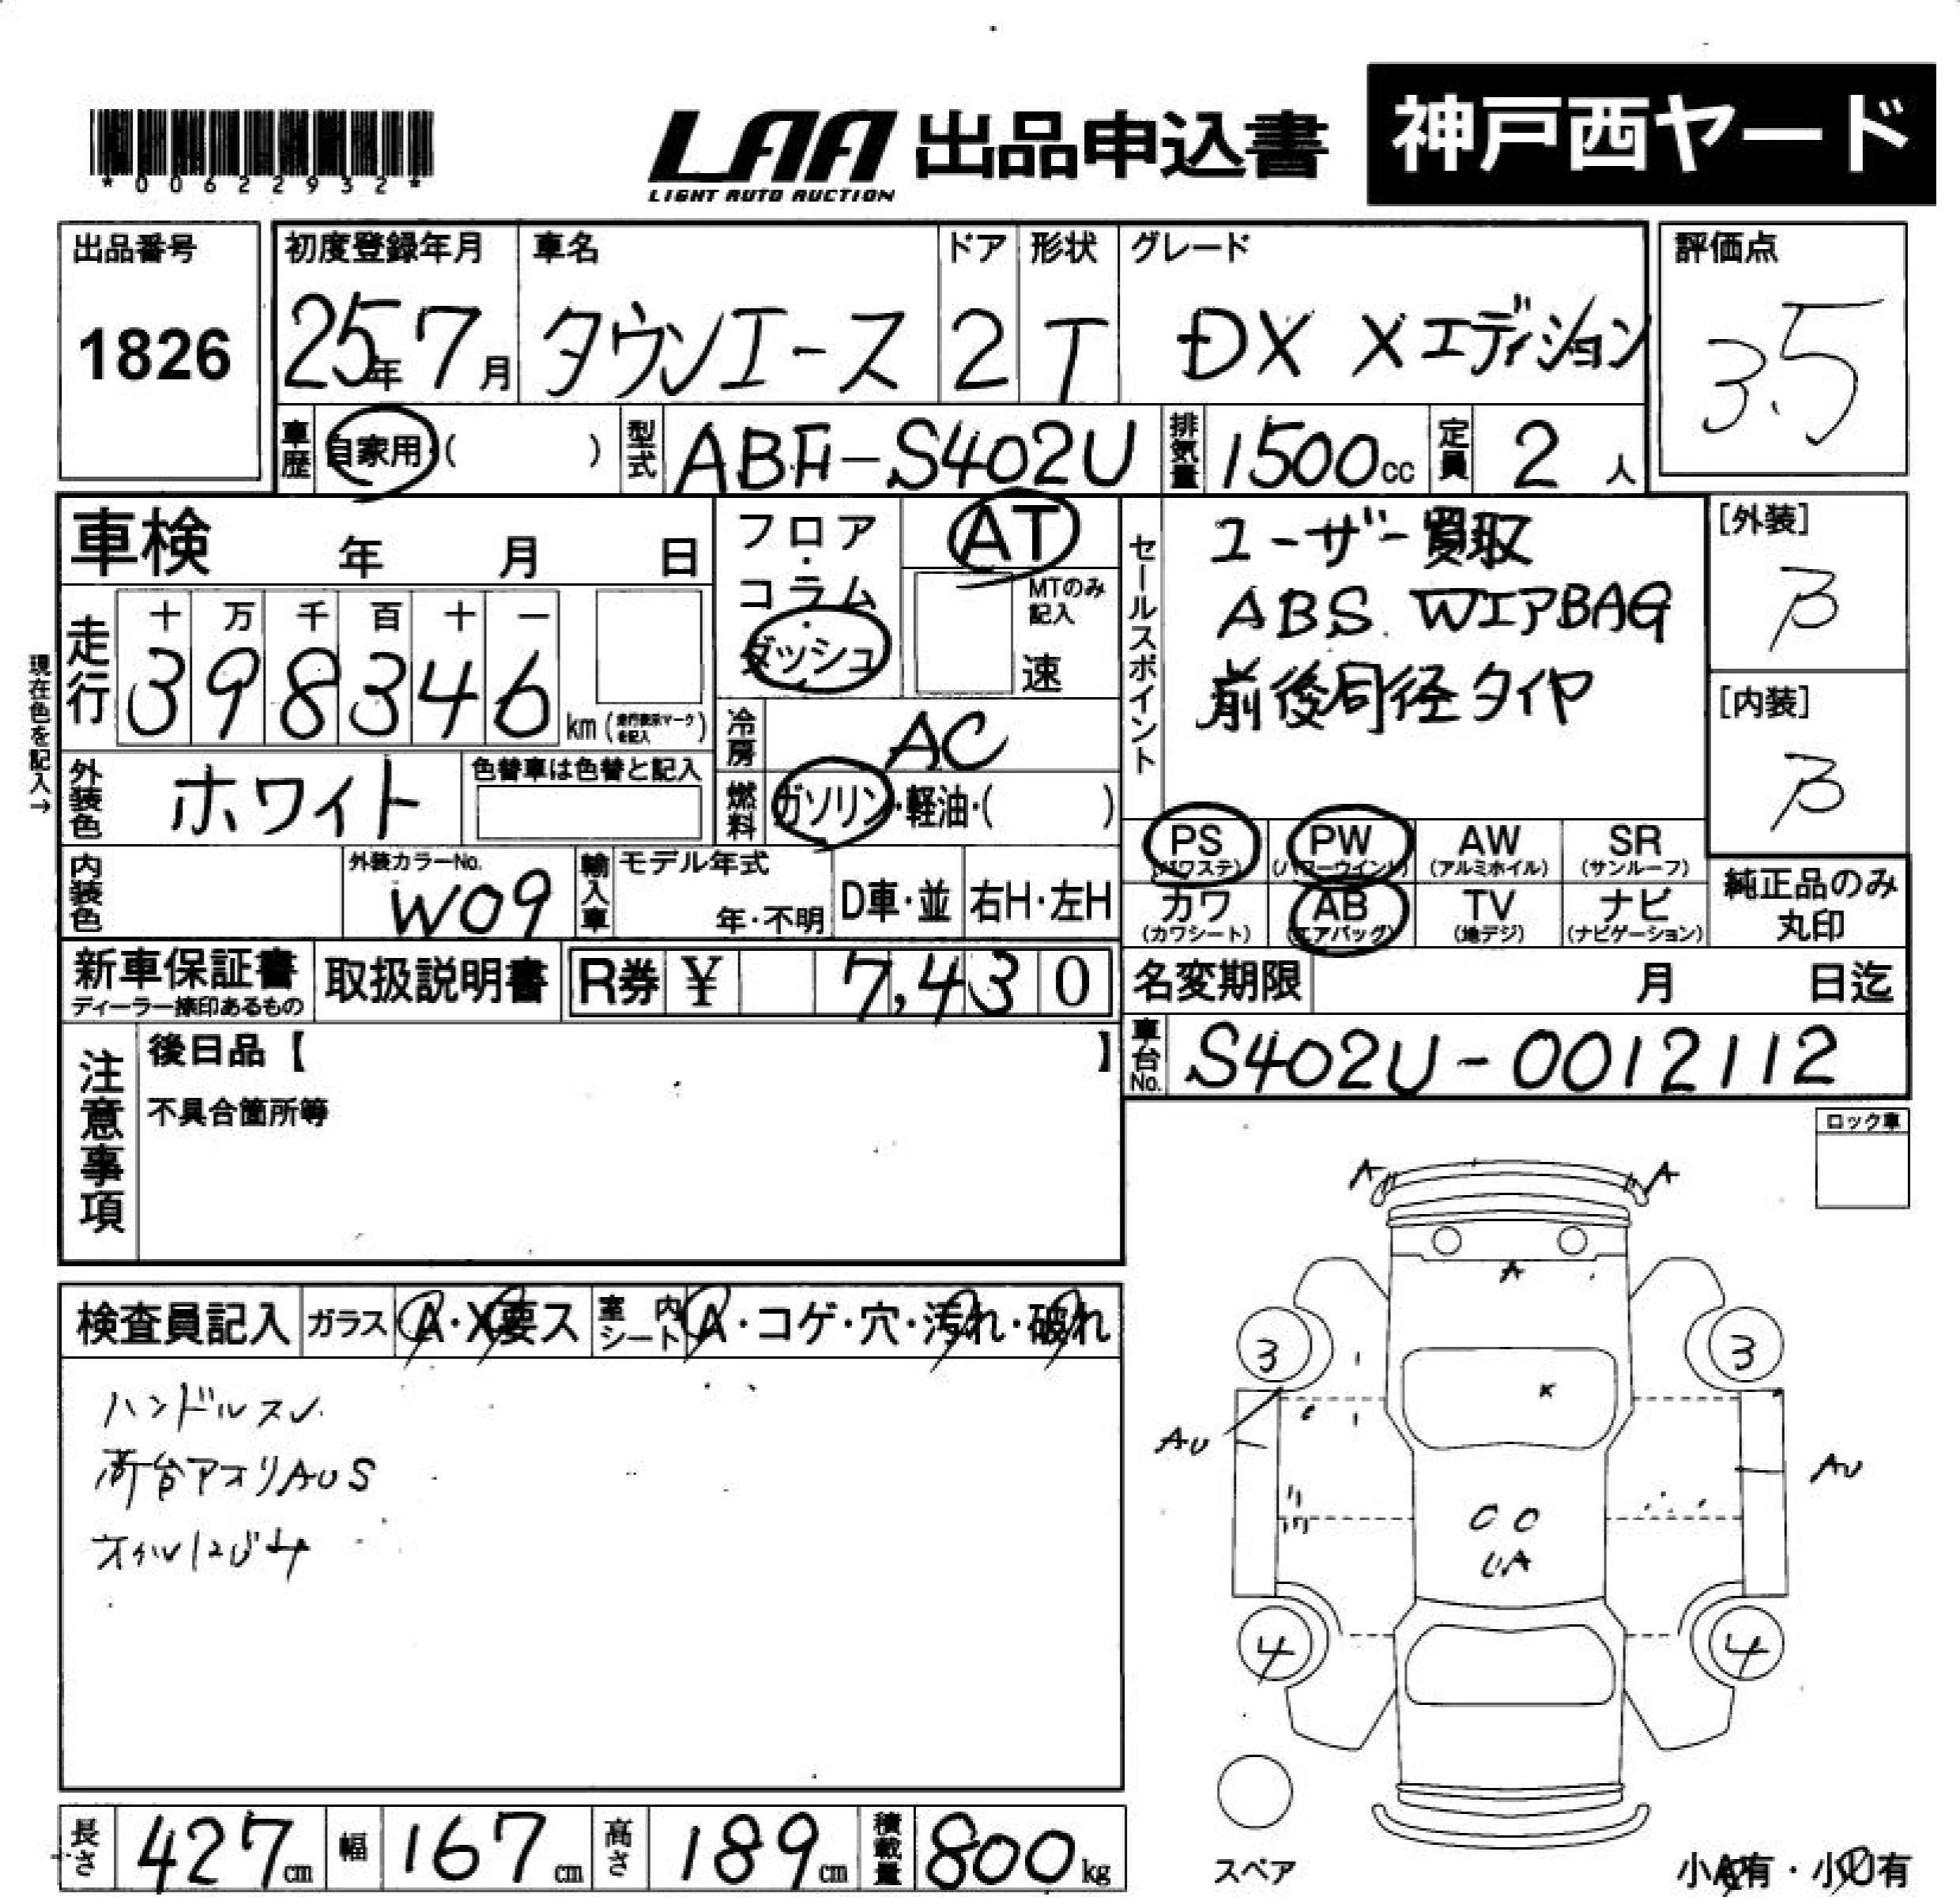 *00622932*
LAA 出品申込書 神戸西ヤード
LIGHT AUTO AUCTION
出品番号 初度登録年月 車名 ドア 形状 グレード 評価点
1826 25年7月 タウンエース 2 T DX Xエディション 3.5
車歴 自家用・( ) 型式 ABF-S402U 排気量 1500cc 定員 2人
車検 年 月 日
フロア・コラム・ダッシュ AT
MTのみ記入
速
セールスポイント
ユーザー買取
ABS. WエアBAG
前後同径タイヤ
[外装]
B
[内装]
B
現在色を記入→
走行 十 万 千 百 十 一
3 9 8 3 4 6 km (走行表示マークを記入)
冷房 AC
外装色 ホワイト 色替車は色替と記入
燃料 ガソリン・軽油・( )
PS AW SR PW
(パワステ) (パワーウインド) (アルミホイル) (サンルーフ)
カワ AB TV ナビ
(カワシート) (エアバッグ) (地デジ) (ナビゲーション)
純正品のみ
丸印
内装色 外装カラーNo. W09 輸入車 モデル年式 年・不明 D車・並 右H・左H
新車保証書 取扱説明書 R券 ¥ 7,430
ディーラー捺印あるもの
名変期限 月 日迄
車台No. S402U-0012112
注意事項
後日品【 】
不具合箇所等
ロック車
A A
A
3 3
AU AU
UA
4 4
スペア
小A有・小U有
検査員記入 ガラス A・X要ス 室内シート A・コゲ・穴・汚れ・破れ
ハンドルスレ
荷台アオリAUS
オイルにじみ
長さ 427cm 幅 167cm 高さ 189cm 積載量 800kg